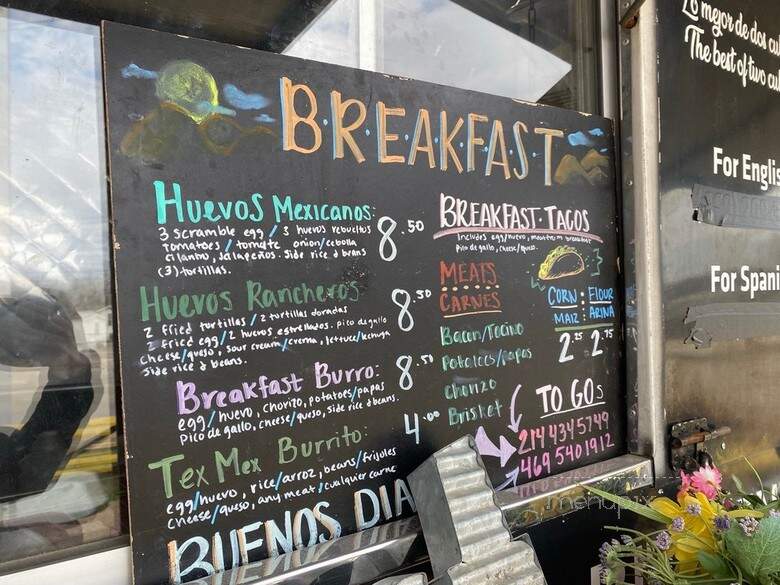 B·R·E·A·K·F·A·S·T
Huevos Mexicanos:
3 scramble egg / 3 huevos revueltos
tomatoes / tomate onion/cebolla
cilantro, Jalapeños. side rice & beans
(3) tortillas.
8.50
Huevos Rancheros:
2 fried tortillas / 2 tortillas doradas
2 fried egg / 2 huevos estrellados. pico de gallo
cheese/queso, sour cream/crema, lettuce/lechuga
side rice & beans.
8.50
Breakfast Burro:
egg/huevo, chorizo, potatoes/papas
pico de gallo, cheese/queso, side rice & beans.
8.50
Tex Mex Burrito:
egg/huevo, rice/arroz, beans/frijoles
cheese/queso, any meat/cualquier carne
4.00
BUENOS DIA
BREAKFAST·TACOS
Includes egg/huevo,
pico de gallo, cheese/queso.
MEATS
CARNES
Bacon/Tocino
Potatoes/papas
chorizo
Brisket
CORN : FLOUR
MAIZ : ARINA
2.25 2.75
TO GOs
214 434 5749
469 540 1912
Lo mejor de dos cu
The best of two cu
For Englis
For Spani
menupix